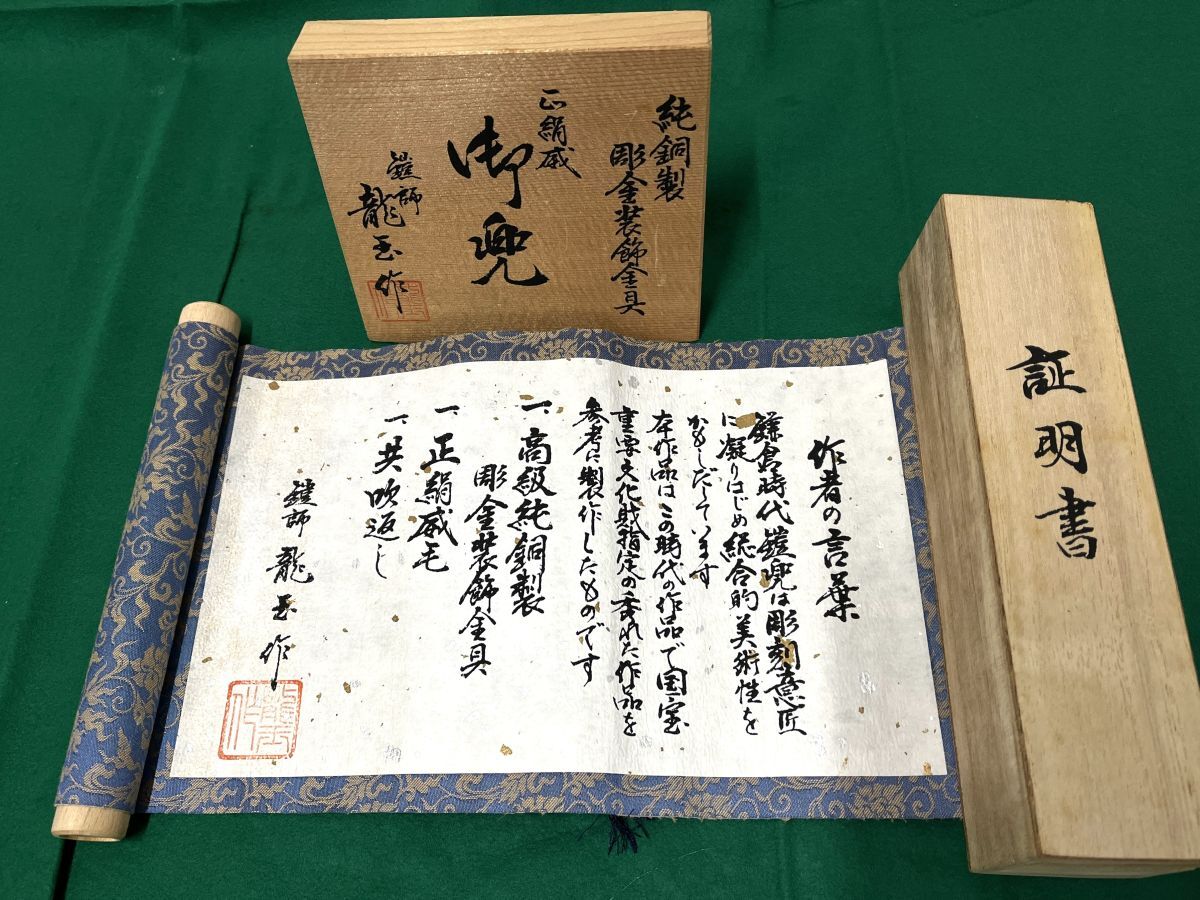 純銅製
彫金装飾金具
正絹威
御兜
鎧師
龍玉作
作者の言葉
鎌倉時代鎧兜は彫刻意匠
に凝りはじめ総合的美術性を
かもしだしています
本作品はこの時代の作品で国宝
重要文化財指定の秀れた作品を
参考に製作したものです
一、高級純銅製
彫金装飾金具
一、正絹威毛
一、共吹返し
鎧師 龍玉作
証明書